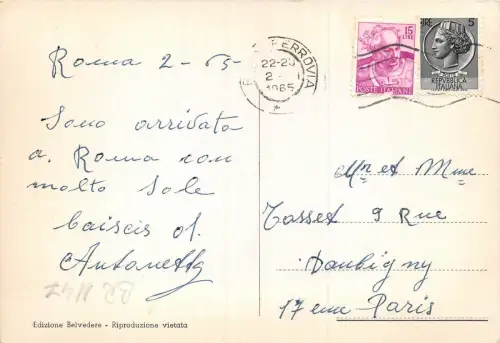 Roma 2 - 65 -
Sono arrivata
a. Roma con
molto sole
baiscis di
Antonetta
Edizione Belvedere - Riproduzione vietata
FERROVIA
22-23
2 - 1
1965
15
LIRE
POSTE ITALIANE
LIRE 5
REPVBBLICA
ITALIANA
Mr et Mme
Tasset 9 Rue
Daubigny
17 eme Paris